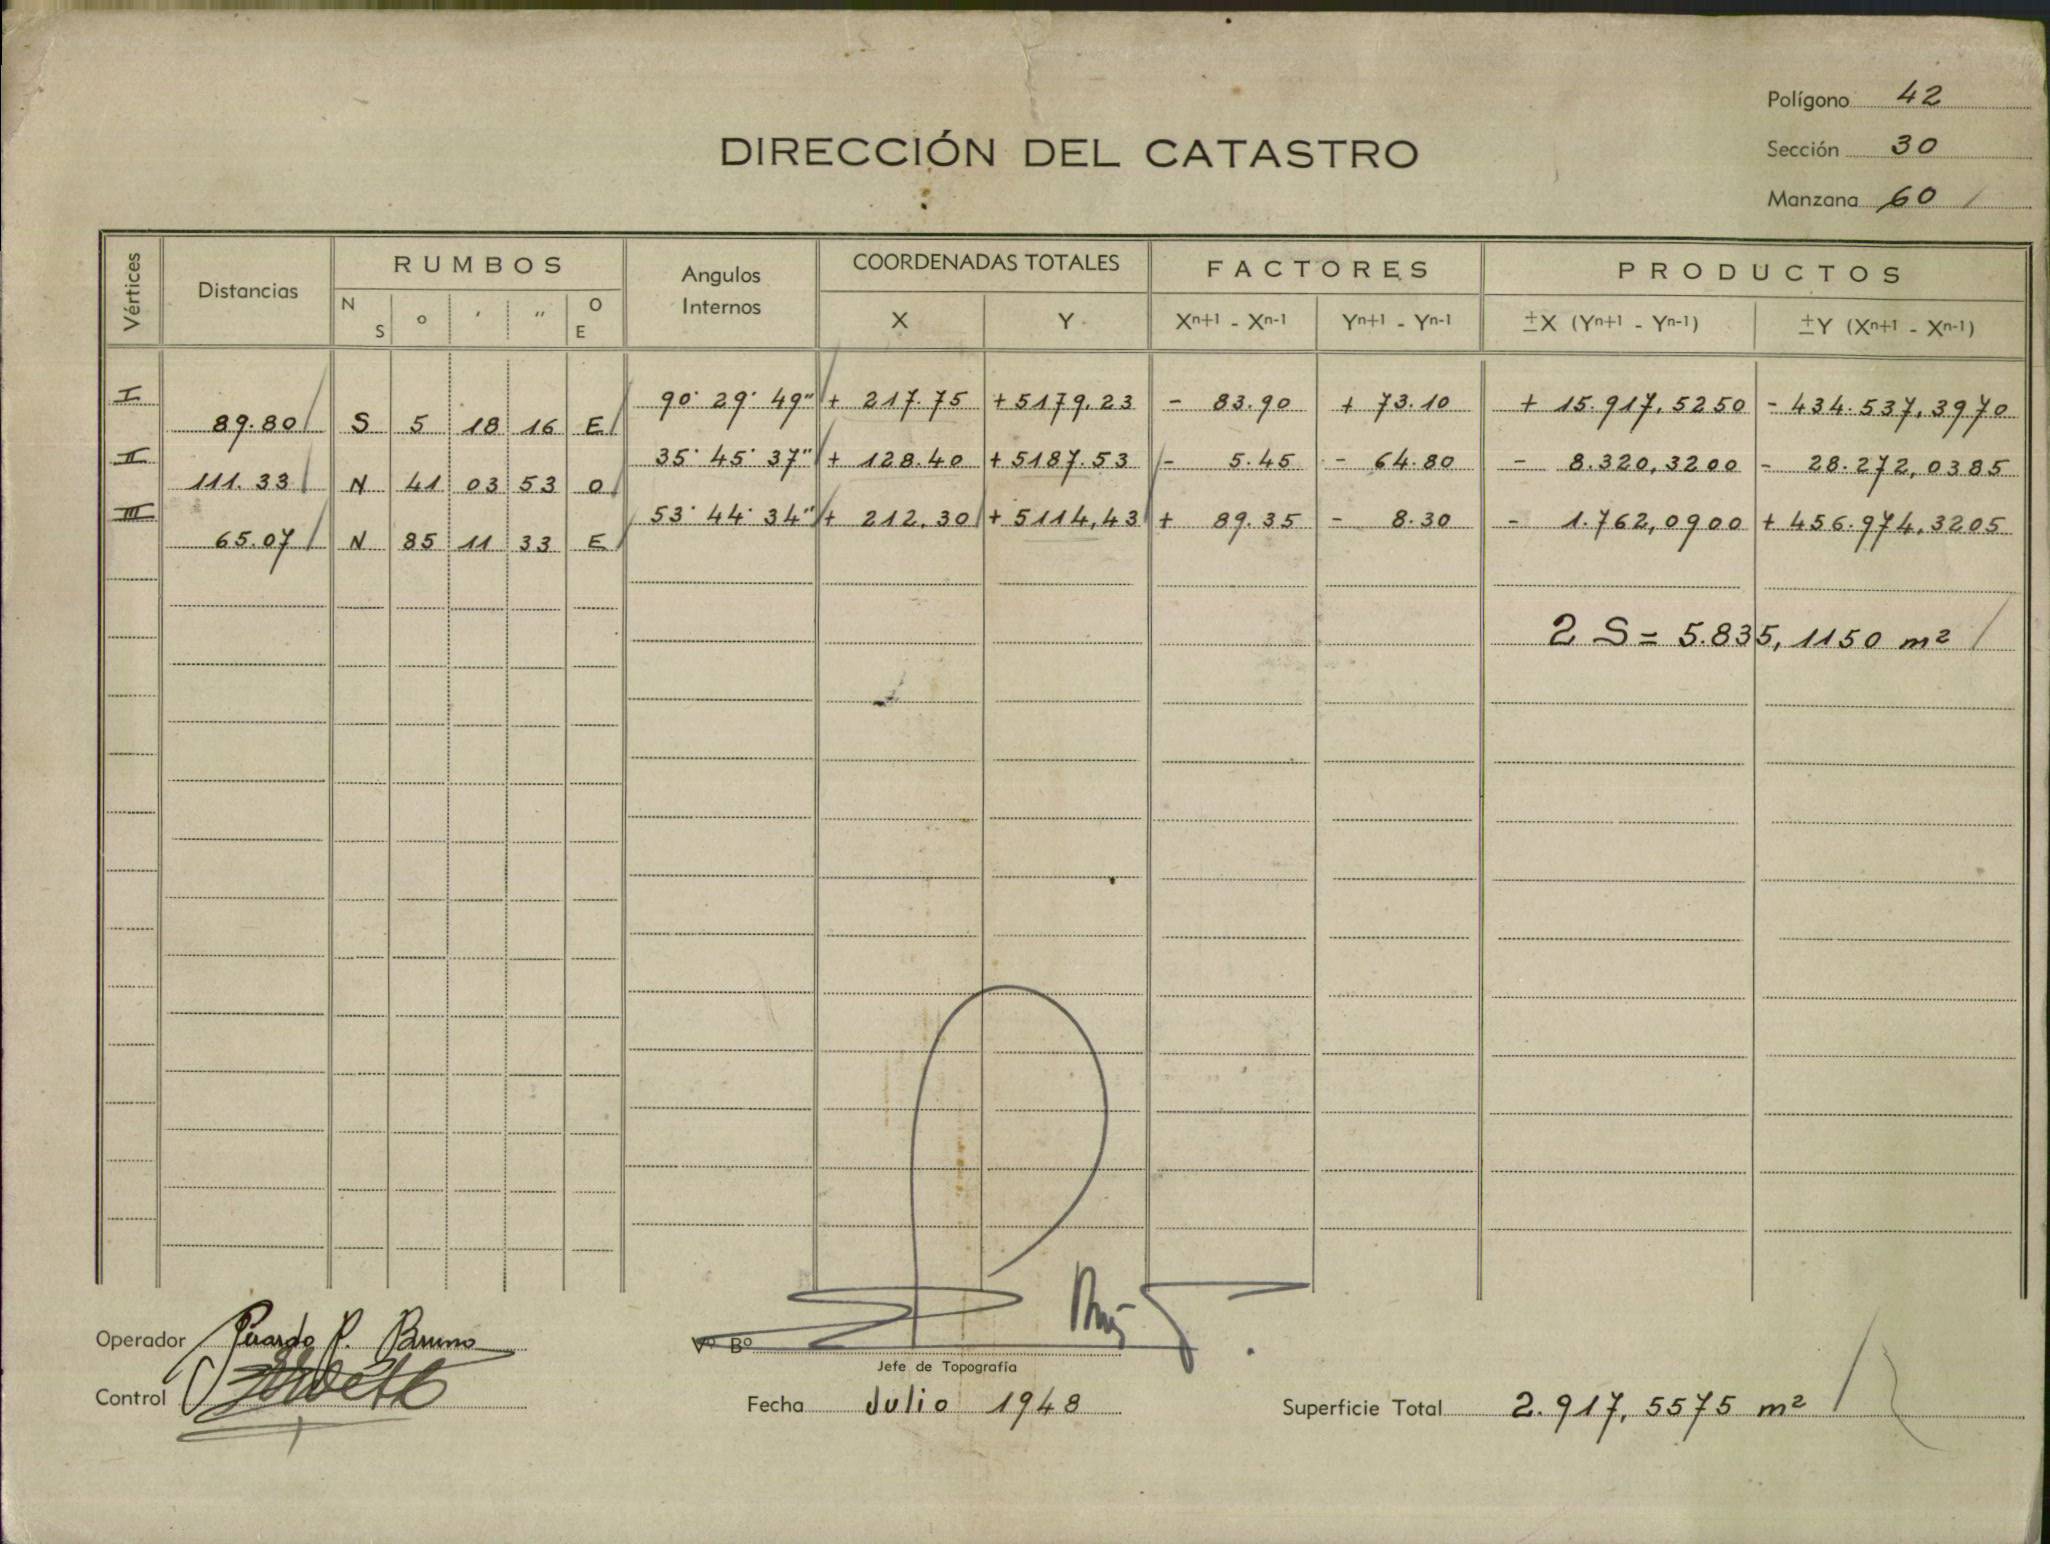 Polígono 42
DIRECCIÓN DEL CATASTRO
Sección 30
Manzana 60
Vértices Distancias RUMBOS Angulos Internos COORDENADAS TOTALES FACTORES PRODUCTOS
N S ° ′ ″ O E X Y Xn+1 - Xn-1 Yn+1 - Yn-1 ±X (Yn+1 - Yn-1) ±Y (Xn+1 - Xn-1)
I 90° 29' 49" + 217.75 + 5179,23 - 83.90 + 73.10 + 15.917,5250 - 434.537,3970
89.80 S 5 18 16 E
II 35° 45' 37" + 128.40 + 5187.53 - 5.45 - 64.80 - 8.320,3200 - 28.272,0385
111.33 N 41 03 53 O
III 53° 44' 34" + 212.30 + 5114,43 + 89.35 - 8.30 - 1.762,0900 + 456.974,3205
65.07 N 85 11 33 E
2 S = 5.835,1150 m²
Operador P. Bruno Vº Bº
Jefe de Topografía
Control Fecha Julio 1948 Superficie Total 2.917,5575 m²